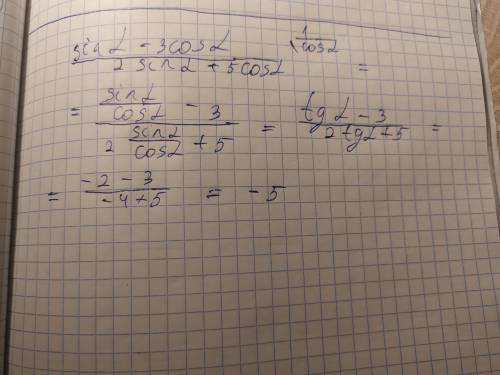 sinα - 3cosα / 2 sinα + 5cosα | 1/cosα =
= (sinα/cosα - 3) / (2 sinα/cosα + 5) = (tgα - 3) / (2tgα+5) =
= (-2 - 3) / (-4+5) = -5